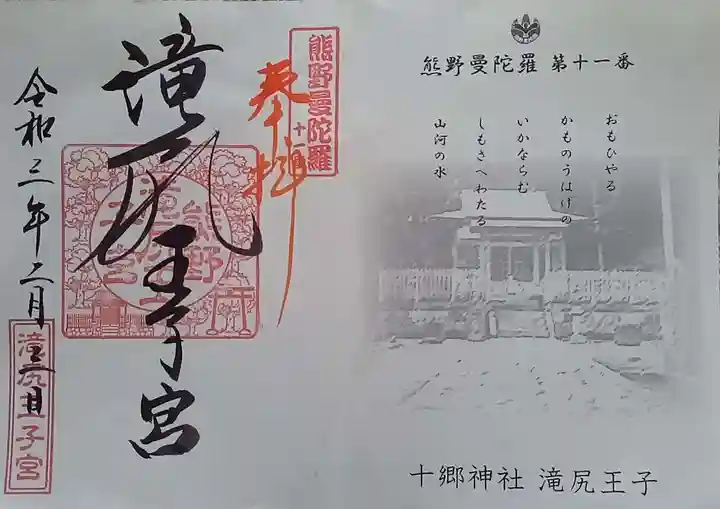 熊野曼陀羅 第十一番
おもひやる
かものうはげの
いかならむ
しもさへわたる
山河の水
十郷神社 滝尻王子
熊野曼陀羅
十一番
奉拝
滝尻王子宮
熊野
滝尻王子宮
令和三年二月
日
滝尻王子宮